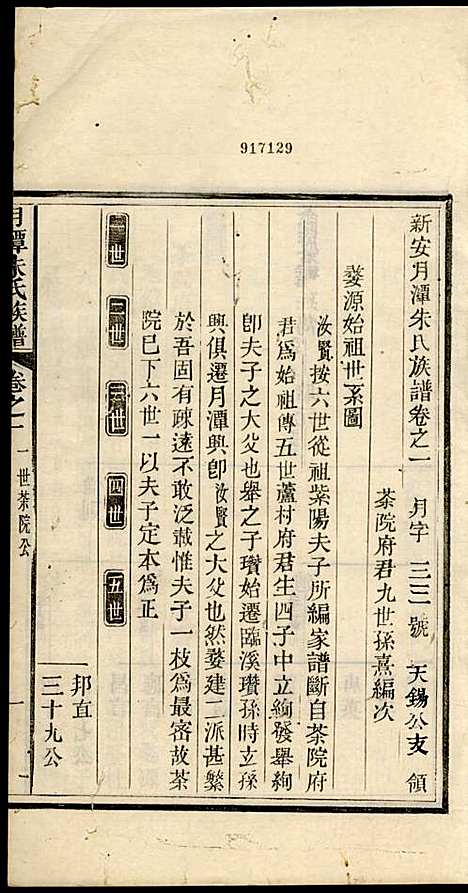 917129
新安月潭朱氏族譜卷之一　月字　三三號　天錫公支　領
茶院府君九世孫熹編次
婺源始祖世系圖
汝賢按六世從祖紫陽夫子所編家譜斷自茶院府
君爲始祖傳五世蘆村府君生四子中立絢發舉絢
卽夫子之大父也舉之子瓚始遷臨溪瓚孫時立孫
興俱遷月潭興卽汝賢之大父也然婺建二派甚繁
於吾固有疎遠不敢泛載惟夫子一枝爲最密故茶
院已下六世一以夫子定本爲正
一世　二世　三世　四世　五世
邦直
三十九公
月潭朱氏族譜　卷之一　一世茶院公　一